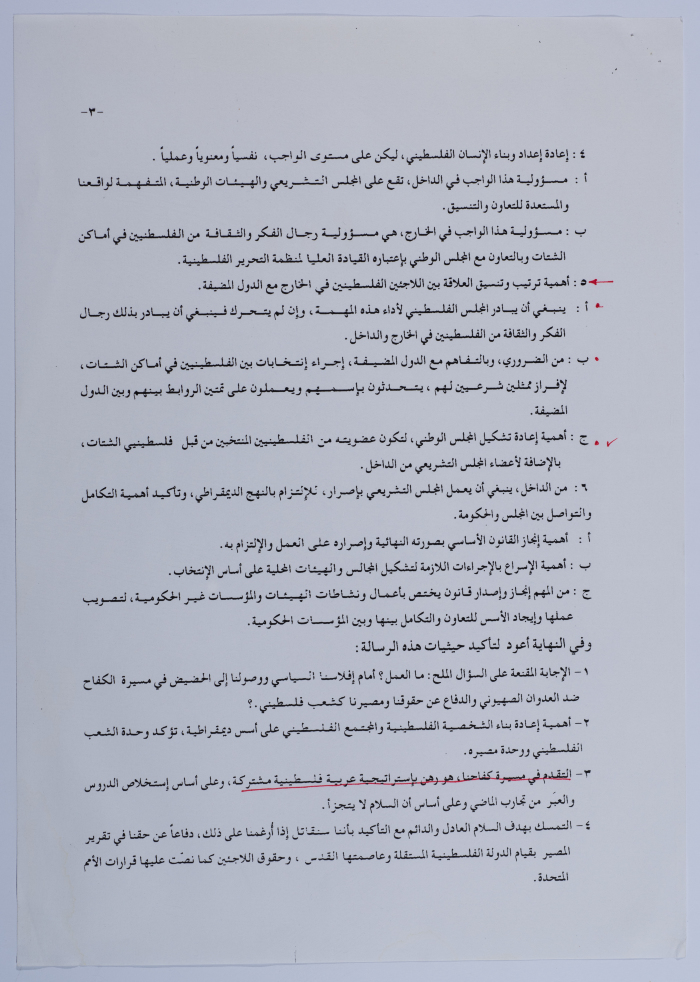 -٣-
٤ : إعادة إعداد وبناء الإنسان الفلسطيني، ليكن على مستوى الواجب، نفسياً ومعنوياً وعملياً .
أ : مسؤولية هذا الواجب في الداخل، تقع على المجلس التشريعي والهيئات الوطنية، المتفهمة لواقعنا
والمستعدة للتعاون والتنسيق.
ب : مسؤولية هذا الواجب في الخارج، هي مسؤولية رجال الفكر والثقافة من الفلسطنيين في أماكن
الشتات وبالتعاون مع المجلس الوطني بإعتباره القيادة العليا لمنظمة التحرير الفلسطينية.
٥ : أهمية ترتيب وتنسيق العلاقة بين اللاجئين الفلسطينين في الخارج مع الدول المضيفة.
أ : ينبغي أن يبادر المجلس الفلسطيني لأداء هذه المهمة، وإن لم يتحرك فينبغي أن يبادر بذلك رجال
الفكر والثقافة من الفلسطنين في الخارج والداخل.
ب : من الضروري، وبالتفاهم مع الدول المضيفة، إجراء إنتخابات بين الفلسطينيين في أماكن الشتات،
لإفراز ممثلين شرعيين لهم ، يتحدثون بإسمهم ويعملون على تمتين الروابط بينهم وبين الدول
المضيفة.
ج : أهمية إعادة تشكيل المجلس الوطني، لتكون عضويته من الفلسطينيين المنتخبين من قبل فلسطينيي الشتات،
بالإضافة لأعضاء المجلس التشريعي من الداخل.
٦ : من الداخل، ينبغي أن يعمل المجلس التشريعي بإصرار، للإلتزام بالنهج الديمقراطي، وتأكيد أهمية التكامل
والتواصل بين المجلس والحكومة.
أ : أهمية إنجاز القانون الأساسي بصورته النهائية وإصراره على العمل والإلتزام به.
ب : أهمية الإسراع بالإجراءات اللازمة لتشكيل المجالس والهيئات المحلية على أساس الإنتخاب.
ج : من المهم إنجاز وإصدار قانون يختص بأعمال ونشاطات الهيئات والمؤسسات غير الحكومية، لتصويب
عملها وإيجاد الأسس للتعاون والتكامل بينها وبين المؤسسات الحكومية.
وفي النهاية أعود لتأكيد حيثيات هذه الرسالة:
١- الإجابة المقنعة على السؤال الملح: ما العمل؟ أمام إفلاسنا السياسي ووصولنا إلى الحضيض في مسيرة الكفاح
ضد العدوان الصهيوني والدفاع عن حقوقنا ومصيرنا كشعب فلسطيني.؟
٢- أهمية إعادة بناء الشخصية الفلسطينية والمجتمع الفلسطيني على أسس ديمقراطية، تؤكد وحدة الشعب
الفلسطيني ووحدة مصيره.
٣- التقدم في مسيرة كفاحنا، هو رهن بإستراتيجية عربية فلسطينية مشتركة، وعلى أساس إستخلاص الدروس
والعبَر من تجارب الماضي وعلى أساس أن السلام لا يتجزأ.
٤- التمسك بهدف السلام العادل والدائم مع التأكيد بأننا سنقاتل إذا أُرغمنا على ذلك، دفاعاً عن حقنا في تقرير
المصير بقيام الدولة الفلسطينية المستقلة وعاصمتها القدس ، وحقوق اللاجئين كما نصّت عليها قرارات الأمم
المتحدة.